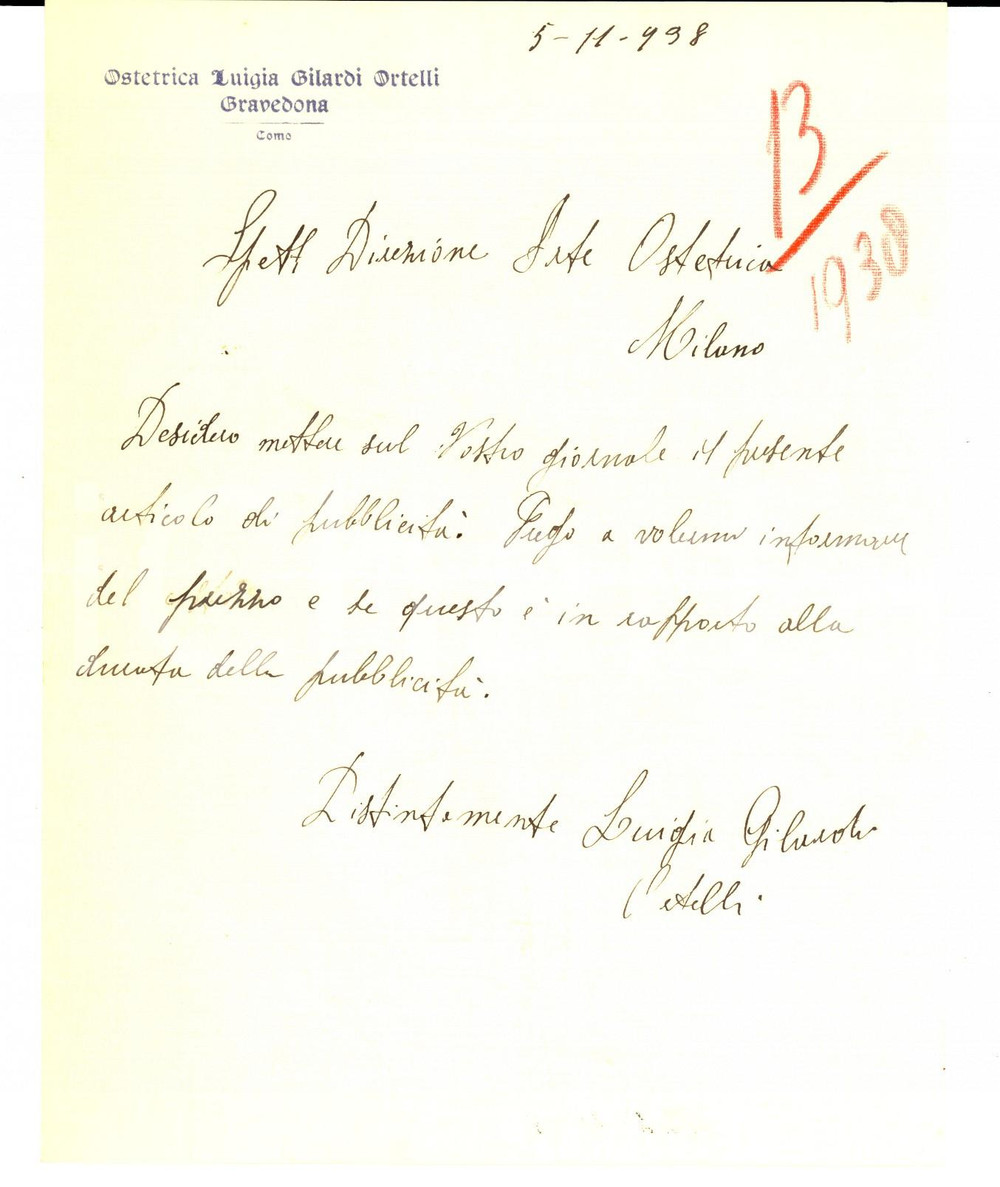 5-11-938
Ostetrica Luigia Gilardi Ortelli
Gravedona
Como
13
1938
Spett Direzione Arte Ostetrica
Milano
Desidero mettere sul Vostro giornale il presente
articolo di pubblicità. Prego a volermi informare
del prezzo e se questo è in rapporto alla
durata della pubblicità.
Distintamente Luigia Gilardi
Ortelli.